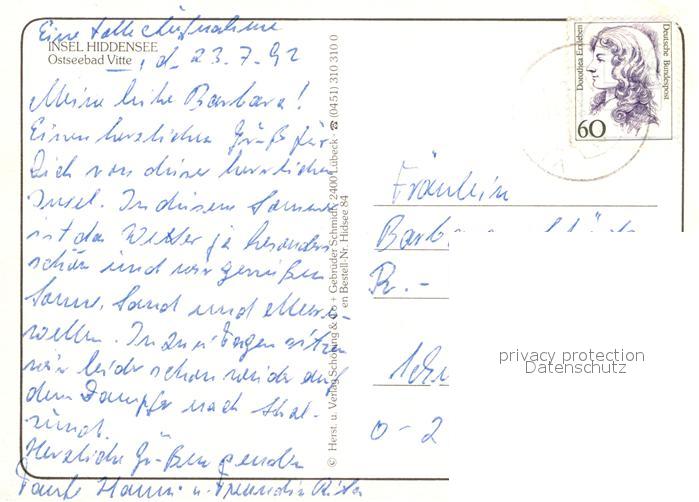 Eine tolle Aufnahme
INSEL HIDDENSEE
Ostseebad Vitte, d. 23.7.92
Meine liebe Barbara!
Einen herzlichen Gruß für
Dich von dieser herrlichen
Insel. In diesem Sommer
ist das Wetter ja besonders
schön und wir genießen
Sonne, Sand und Meeres-
wellen. In Tagen sitzen
wir leider schon wieder auf
dem Dampfer nach Stral-
sund.
Herzliche Grüße senden
Tante Hanni u. Freundin Rita
© Herst. u. Verlag Schöning & Co + Gebrüder Schmidt, 2400 Lübeck · ☎ (0451) 310 310 0
en Bestell-Nr. Hidsee 84
Dorothea Erxleben
Deutsche Bundespost
60
Fräulein
Barb
R.-
O-2
privacy protection
Datenschutz